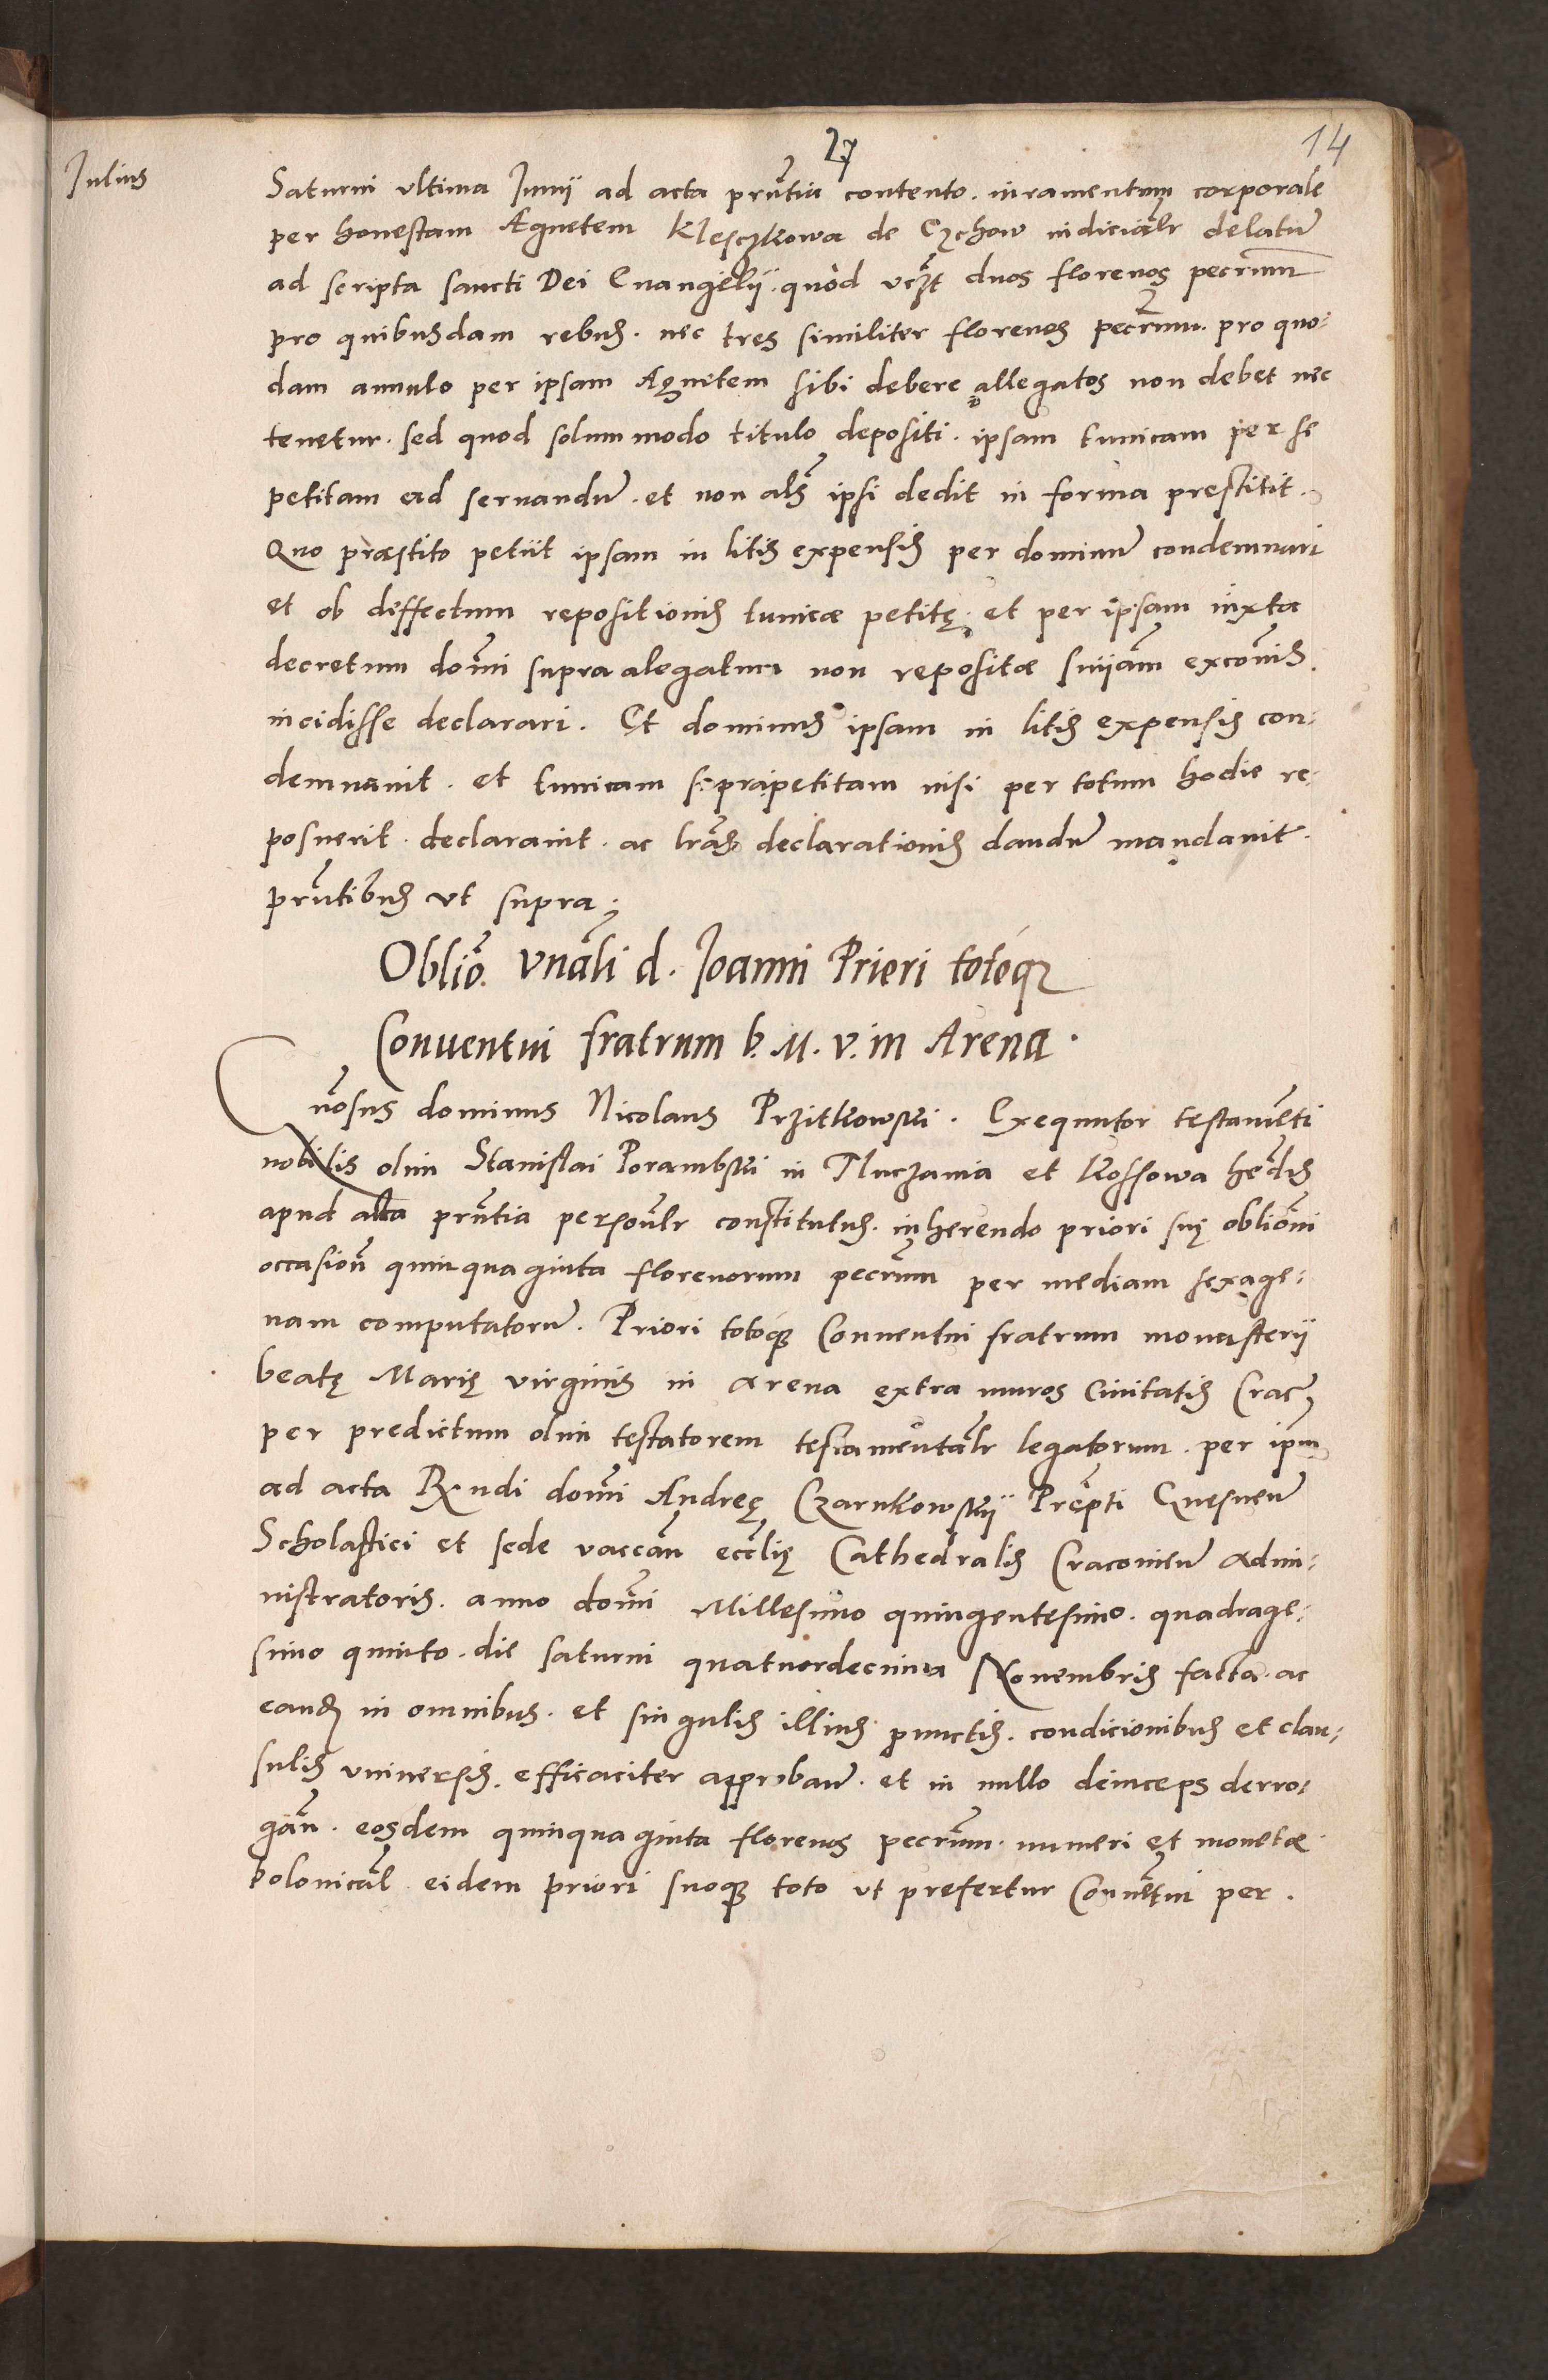 27
14
Iulius
Saturni ultima Iunij ad acta prñtia contento. iuramentum corporale
per honestam Agnetem Kleschkowa de Czchow iudicialr delatũ
ad scripta sancti Dei Euangelij. quod vczt duos florenos pecrunm
pro quibusdam rebus. nec tres similiter florenos pecrunm. pro quo-
dam annulo per ipsam Agnetem sibi debere allegatos non debet nec
tenetur. sed quod solummodo titulo depositi. ipsam tunicam per se
petitam ad seruandũ. et non als ipsi dedit in forma prestitit.
Quo præstito petijt ipsam in litis expensis per dominũ condemnari
et ob diffectum repositionis tunicæ petitę. et per ipsam iuxta
decretum domi supra alegatum non repositæ snijam excomis.
incidisse declarari. Et dominus ipsam in litis expensis con-
demnauit. et tunicam suprapetitam nisi per totum hodie re-
posuerit. declarauit. ac lras declarationis dandũ mandauit.
prñtibus ut supra;
Oblio. vnali d. Ioanni Prieri totoque
Conuentui fratrum b. M. v. in Arena.
Gnosus dominus Nicolaus Przitkowski. Exequutor testamenti
nobilis olim Stanislai Porambski in Tluczania et Kossowa hedis
apud acta prñtia personlr constitutus. inherendo priori suę obliomi
occasion quinquaginta florenorum pecrunm per mediam sexage-
nam computatorũ. Priori totoque Conuentui fratrum monasterij
beatę Marię virginis in Arena extra muros Ciuitatis Crac
per predictum olim testatorem testamentalr legatorum. per ipm
ad acta Rndi domi Andreę Czarnkowskij Prepti Gnesneñ
Scholastici et sede vaccan ecclię Cathedralis Cracouieñ Admi-
nistratoris. anno domi Millesimo quingentesimo. quadrage-
simo quinto. die saturni quatuordecima Nouembris facta. ac
eand in omnibus. et singulis illius punctis. condicionibus et clau-
sulis vniuersis. efficaciter approban. et in nullo deinceps derro-
gan. eosdem quinquaginta florenos pecrunm. numeri et monetæ
polonical. eidem priori suoque toto ut prefertur Conuentui per.